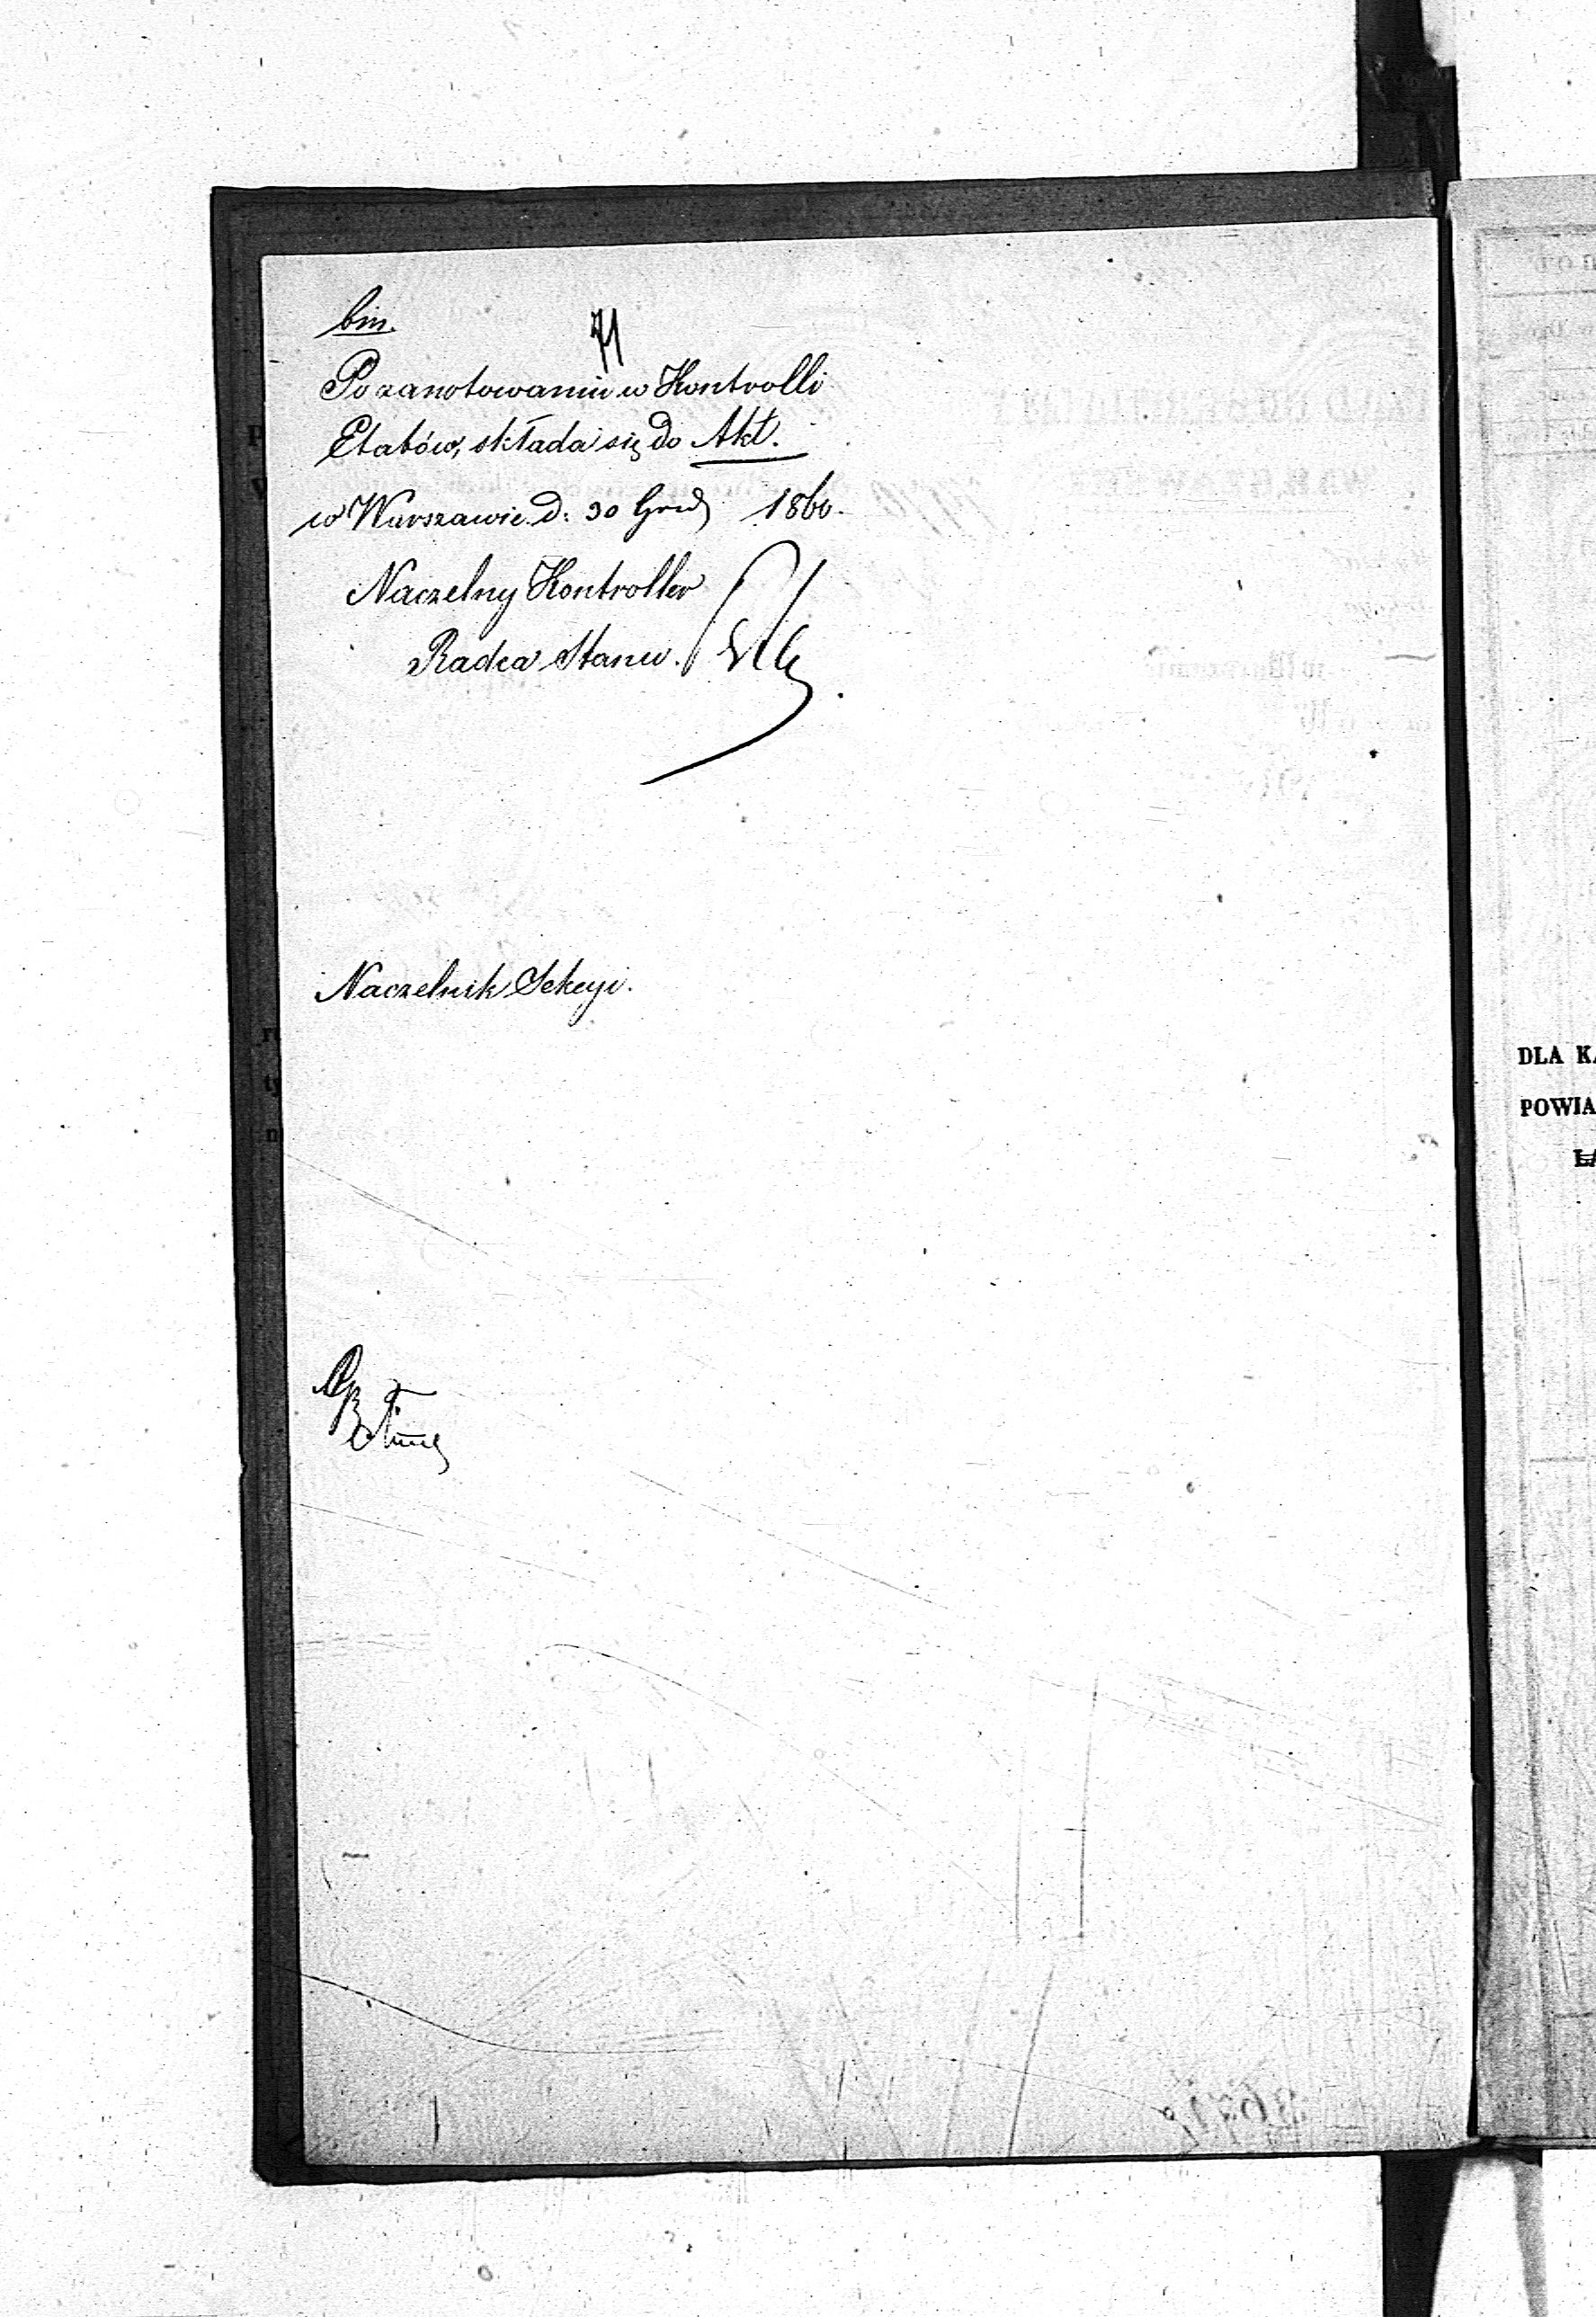 bm.
71
Po zanotowaniu w Kontrolli
Etatów, składa się do Akt.
w Warszawie d: 30 Grud 1860.
Naczelny Kontroller
Radca Stanu.
Naczelnik Sekcyi.
DLA KA
POWIA
ŁA